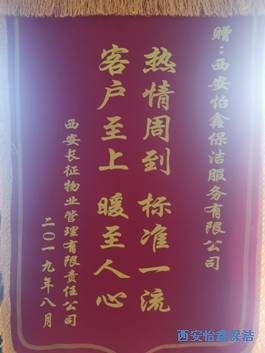 赠：西安怡鑫保洁服务有限公司
热情周到 标准一流
客户至上 暖至人心
西安长征物业管理有限责任公司
二〇一九年八月
西安怡鑫保洁